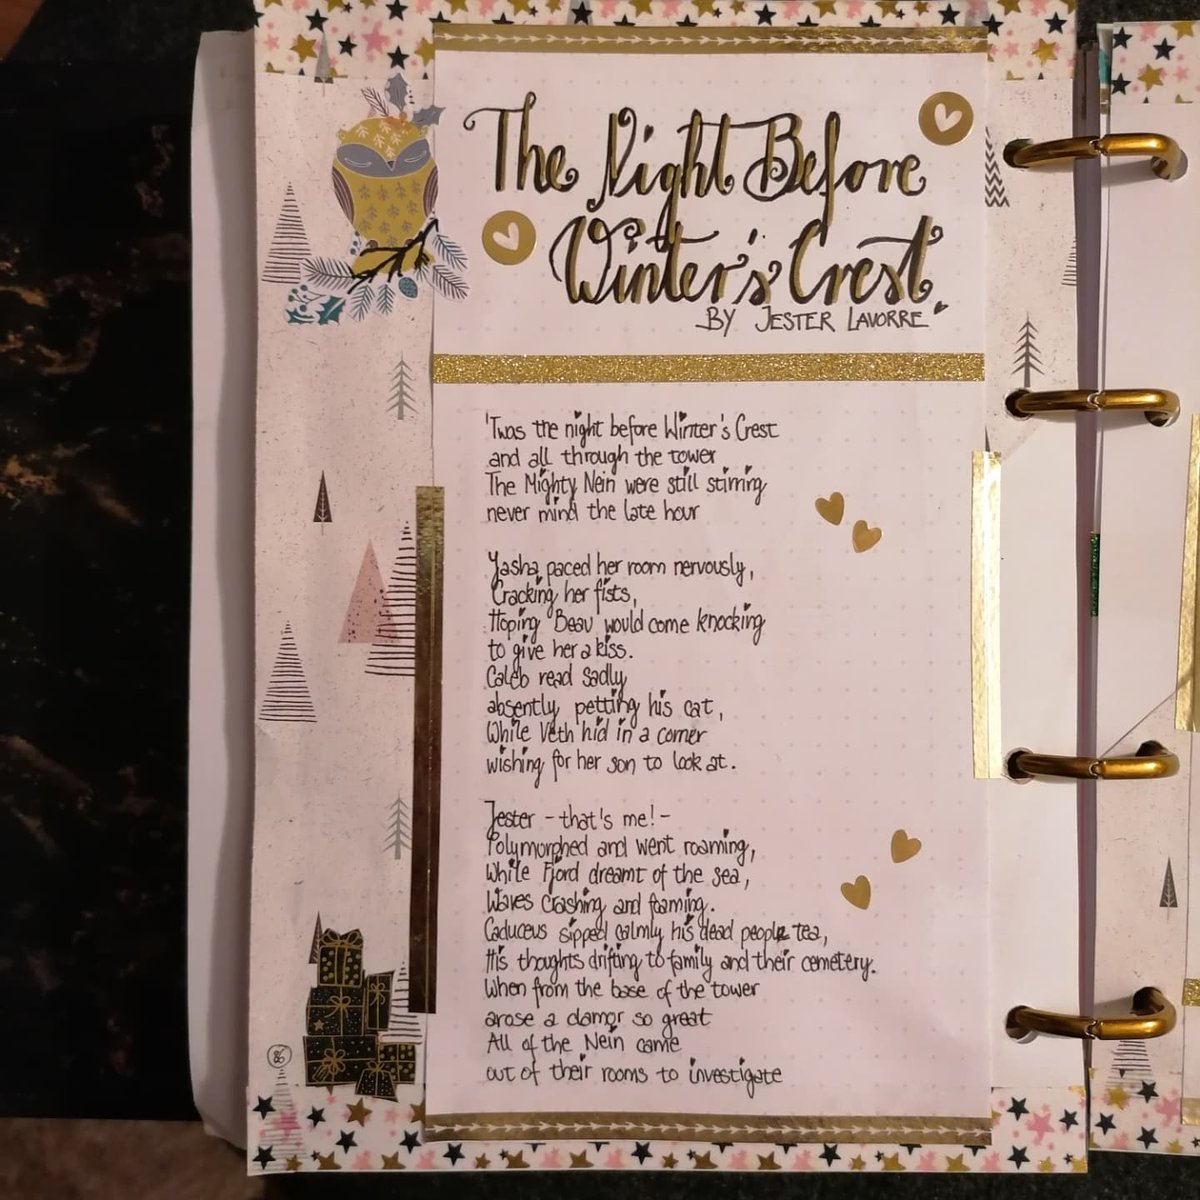 The Night Before
Winter's Crest
BY JESTER LAVORRE
'Twas the night before Winter's Crest
and all through the tower
The Mighty Nein were still stirring
never mind the late hour
Yasha paced her room nervously,
Cracking her fists,
Hoping Beau would come knocking
to give her a kiss.
Caleb read sadly
absently petting his cat,
While Veth hid in a corner
wishing for her son to look at.
Jester - that's me! -
Polymorphed and went roaming,
While Fjord dreamt of the sea,
Waves crashing and foaming.
Caduceus sipped calmly his dead people tea,
His thoughts drifting to family and their cemetery.
When from the base of the tower
arose a clamor so great
All of the Nein came
out of their rooms to investigate